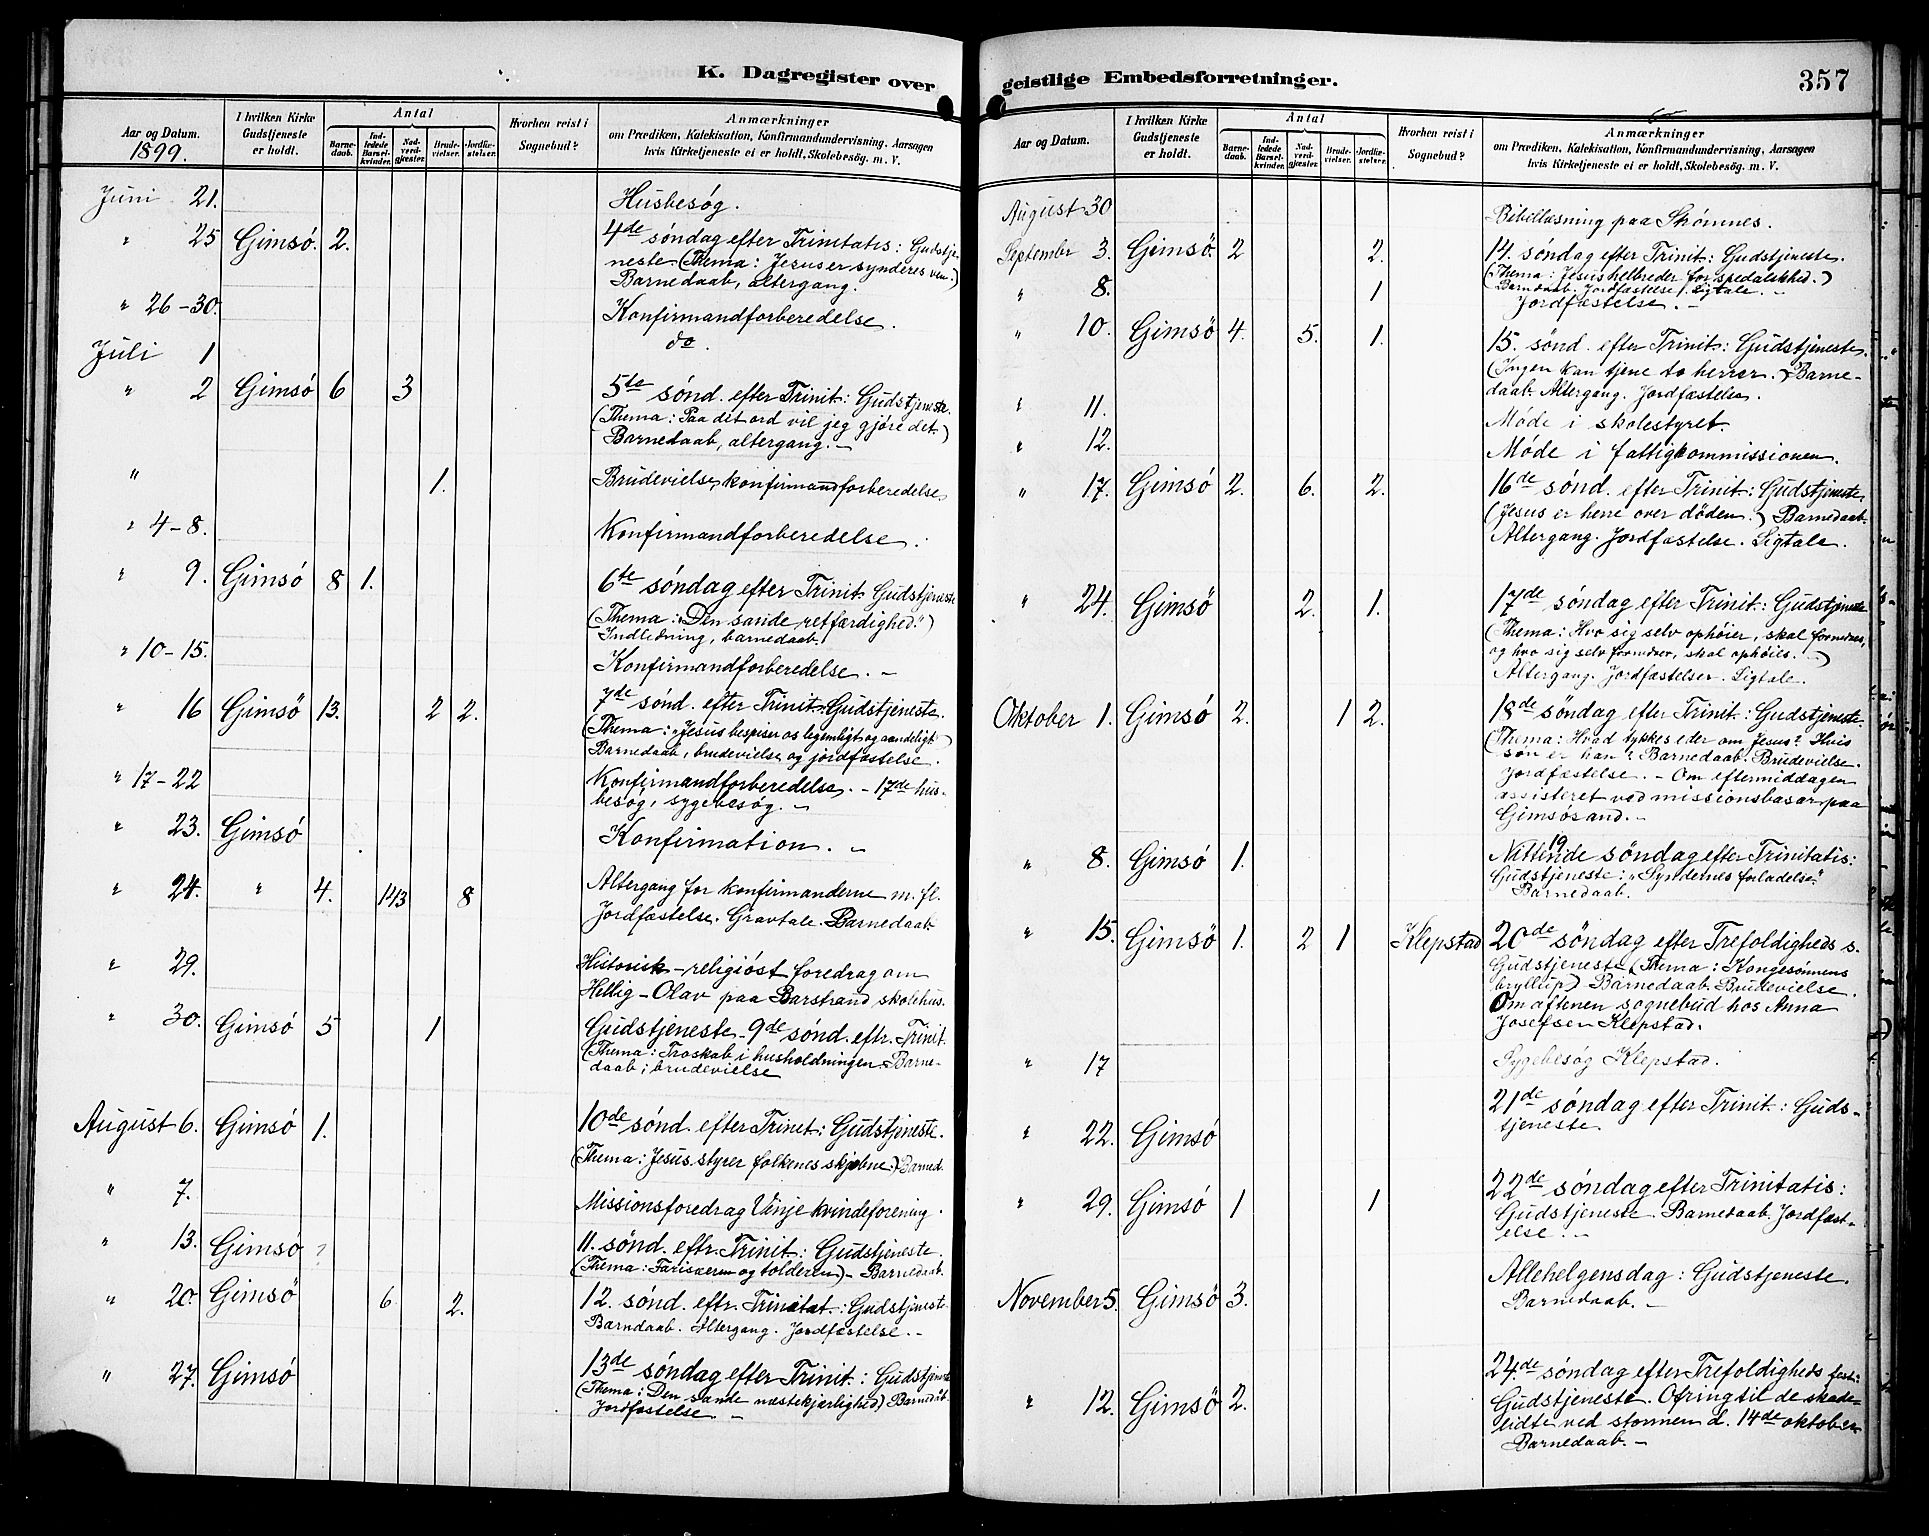 K. Dagregister over
Aar og Datum.
1899.
I hvilken Kirke
Gudstjeneste
er holdt.
Antal
Barne-
daab.
Ind-
ledede
Barsel-
kvinder.
Nad-
verd-
gjester.
Brude-
vielser.
Jordfæ-
stelser.
Hvorhen reist i
Sognebud?
Anmærkninger
om Prædiken, Katekisation, Konfirmandundervisning, Aarsagen
hvis Kirketjeneste ei er holdt, Skolebesøg. m. V.
Juni 21. Husbesøg.
" 25 Gimsö. 2. 4de søndag efter Trinitatis: Gudstje-
neste (Thema: Jesus er synderes ven.)
Barnedaab, altergang.
" 26-30. Konfirmandforberedelse.
Juli 1 do.
" 2 Gimsö 6 3 5te sønd. efter Trinit: Gudstjeneste.
(Thema: Paa dit ord vil jeg gjøre det.)
Barnedaab, altergang. -
" 1. Brudevielse, konfirmandforberedelse
" 4-8. Konfirmandforberedelse.
" 9. Gimsö 8 1. 6te søndag efter Trinit. Gudstjeneste
(Thema: "Den sande retfærdighed.")
Indledning, barnedaab.
" 10-15. Konfirmandforberedelse. -
" 16 Gimsö 13. 2 2. 7de sønd. efter Trinit. Gudstjeneste.
(Thema: "Jesus bespiser os legemligt og aandeligt)
Barnedaab, brudevielse og jordfæstelse.
" 17-22 Konfirmandforberedelse. - 17de hus-
besøg, sygebesøg. -
" 23. Gimsö Konfirmation. -
" 24. " 4. 143 8 Altergang for konfirmanderne m. fl.
Jordfæstelse. Gravtale. Barnedaab.
" 29. Historisk-religiøst foredrag om
Hellig-Olav paa Barstrand skolehus.
" 30. Gimsö 5 1 Gudstjeneste - 9de sønd. eftr. Trinit.
(Thema: Troskab i husholdningen. Barne-
daab, brudevielse
August 6. Gimsö 1. 10de sønd. efter Trinit: Gudstjeneste.
(Thema: Jesus styrer folkenes skjæbne.) Barned.
" 7. Missionsforedrag Vinje kvindeforening.
" 13. Gimsö ? 11. sønd. eftr. Trinit.: Gudstjeneste.
(Thema: Farisæeren og tolderen) - Barnedaab.
" 20. Gimsö 6 2. 12. sønd. eftr. Trinitat: Gudstjeneste
Barndaab. Altergang. Jordfæstelse. -
" 27. Gimsö 13de søndag efter Trinit.: Gudstjeneste
(Thema: Den sande næstekjærlighed) Barnedåb.
Jordfæstelse -
geistlige Embedsforretninger.
357
Aar og Datum.
I hvilken Kirke
Gudstjeneste
er holdt.
Antal
Barne-
daab.
Ind-
ledede
Barsel-
kvinder.
Nad-
verd-
gjester.
Brude-
vielser.
Jordfæ-
stelser.
Hvorhen reist i
Sognebud?
Anmærkninger
om Prædiken, Katekisation, Konfirmandundervisning, Aarsagen
hvis Kirketjeneste ei er holdt, Skolebesøg. m. V.
August 30 Bibellæsning paa Strømnes.
September 3. Gimsö. 2 2. 14. søndag efter Trinit: Gudstjeneste.
(Thema: Jesus helbreder for spedalskhed.)
Barndaab. Jordfæstelse / Ligtale. -
" 8. 1 Jordfæstelse. -
" 10. Gimsö 4. 5. 1. 15. sønd. efter Trinit: Gudstjeneste.
(Ingen kan tjene to herrer.) Barne-
daab. Altergang. Jordfæstelse.
" 11. Møde i skolestyret.
" 12. Møde i fattigkommissionen.
" 17. Gimsö 2. 6. 2. 16de sønd. efter Trinit: Gudstjeneste.
(Jesus er herre over døden.) Barnedaab.
Altergang. Jordfæstelse. Ligtale.
" 24. Gimsö 2. 1. 17de søndag efter Trinit: Gudstjeneste
(Thema: Hvo sig selv ophøier, skal fornedres,
og hvo sig selv fornedrer, skal ophøies. -)
Altergang. Jordfæstelser. Ligtale.
Oktober 1. Gimsö 2. 1 2. 18de søndag efter Trinit: Gudstjeneste.
(Thema: Hvad tykkes eder om Jesus? Hvis
søn er han? Barnedaab. Brudevielse.
Jordfæstelse. - Om eftermiddagen
assisteret ved missionsbasar paa
Gimsøsand. -
" 8. Gimsö 1. Nittende 19 søndag efter Trinitatis:
Gudstjeneste: "Syndernes forladelse".
Barnedaab.
" 15. Gimsö 1. 2 1 Klepstad 20de søndag efter Trefoldigheds s.
Gudstjeneste (Thema: Kongesønnens
bryllup) Barnedaab. Brudevielse.
Om aftenen sognebud hos Anna
Josefsen Klepstad.
" 17 Sygebesøg Klepstad.
" 22. Gimsö 21de søndag efter Trinit: Guds-
tjeneste.
" 29. Gimsö 1 1 22de søndag efter Trinitatis:
Gudstjeneste. Barnedaab. Jordfæst-
else. -
November 5. Gimsö 3. Allehelgensdag: Gudstjeneste.
Barnedaab. -
" 12. Gimsö 2. 24.de søndag efter Trefoldigheds fest:
Gudstjeneste. Ofring til de skade-
lidte ved stormen d. 14de oktober
Barnedaab. -